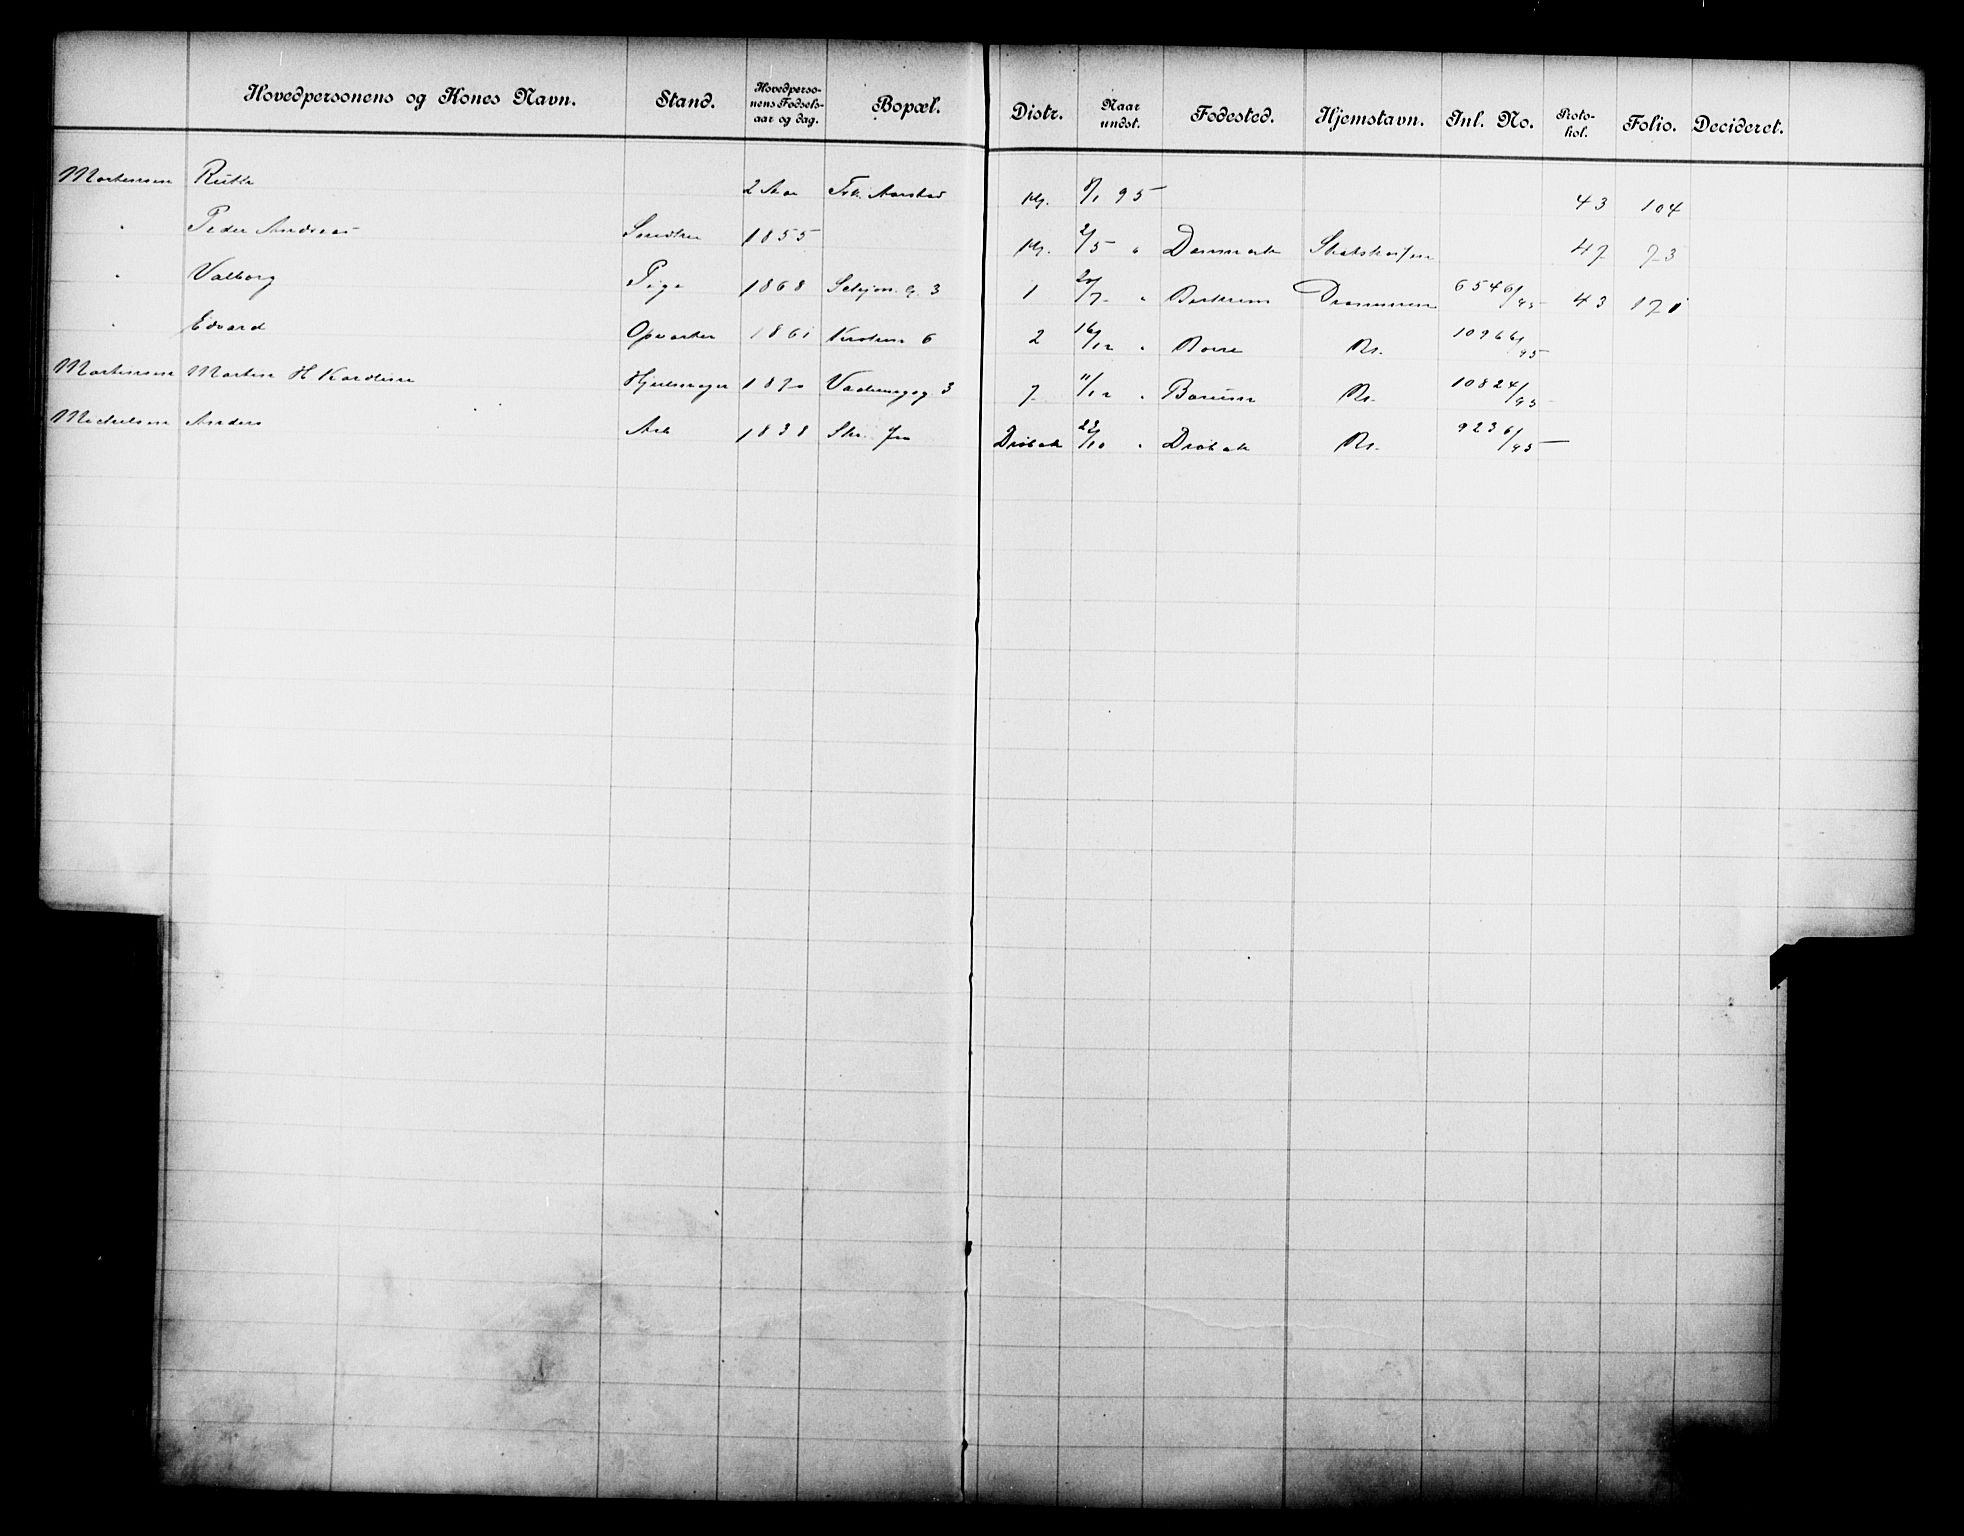 Hovedpersonens og Kones Navn. Stand. Hovedperso-nens Fødsels-aar og dag. Bopæl. Distr. Naar undst. Fødested. Hjemstavn. Inl. No. Proto-kol. Folio. Decideret.
Mortensen Ruth 2 Aar Frk. Aarstad Kg. 8/1 95 43 104
" Peder Andreas 1855 Kg. 2/5 " Danmark Statskassen 47 73
" Valborg Pige 1868 3 1 20/7 " Drammen 6546/95 43 170
" Edvard Opvarter 1861 6 2 16/12 " Borre Kr. 10966/95
Mortensen Morten H Kardius Hjulmager 1870 3 7 11/12 " Bærum Kr. 10824/95
Michelsen Anders Arb 1838 Drøbak 23/10 " Drøbak Kr. 9236/95